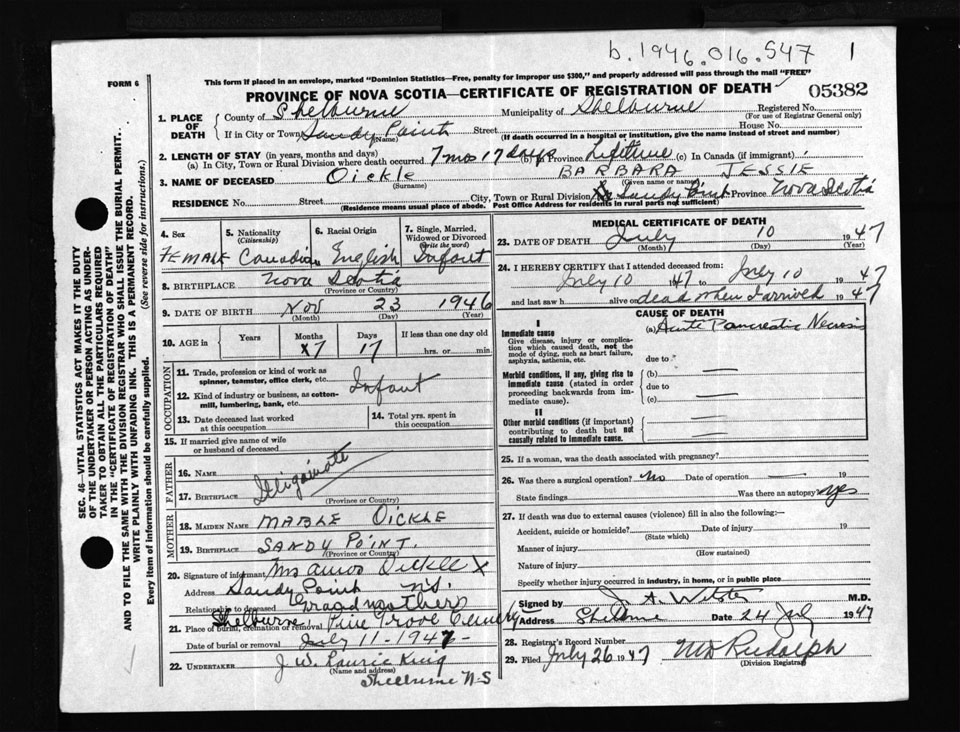 b.1946.016.547 1
FORM 6
This form if placed in an envelope, marked "Dominion Statistics—Free, penalty for improper use $300," and properly addressed will pass through the mail "FREE"
PROVINCE OF NOVA SCOTIA—CERTIFICATE OF REGISTRATION OF DEATH 05382
SEC. 46—VITAL STATISTICS ACT MAKES IT THE DUTY
OF THE UNDERTAKER OR PERSON ACTING AS UNDER-
TAKER TO OBTAIN ALL THE PARTICULARS REQUIRED
IN THE "CERTIFICATE OF REGISTRATION OF DEATH"
AND TO FILE THE SAME WITH THE DIVISION REGISTRAR WHO SHALL ISSUE THE BURIAL PERMIT.
WRITE PLAINLY WITH UNFADING INK. THIS IS A PERMANENT RECORD.
Every item of information should be carefully supplied. (See reverse side for instructions.)
1. PLACE OF DEATH
County of Shelburne Municipality of Shelburne Registered No.
(For use of Registrar General only)
If in City or Town Sandy Point Street House No.
(Name) (If death occurred in a hospital or institution, give the name instead of street and number)
2. LENGTH OF STAY (in years, months and days)
(a) In City, Town or Rural Division where death occurred 7 mos 17 days (b) In Province Lifetime (c) In Canada (if immigrant)
3. NAME OF DECEASED Oickle BARBARA JESSIE
(Surname) (Given name or names)
RESIDENCE No. Street City, Town or Rural Division Sandy Point Province Nova Scotia
(Residence means usual place of abode. Post Office Address for residents in rural parts not sufficient)
4. Sex 5. Nationality (Citizenship) 6. Racial Origin 7. Single, Married, Widowed or Divorced (Write the word)
FEMALE Canadian English Infant
8. BIRTHPLACE Nova Scotia
(Province or Country)
9. DATE OF BIRTH Nov 23 1946
(Month) (Day) (Year)
10. AGE in Years Months Days If less than one day old
7 17 hrs. or min.
OCCUPATION
11. Trade, profession or kind of work as
spinner, teamster, office clerk, etc. Infant
12. Kind of industry or business, as cotton-
mill, lumbering, bank, etc.
13. Date deceased last worked
at this occupation
14. Total yrs. spent in
this occupation
15. If married give name of wife
or husband of deceased
FATHER
16. Name Illigimate
17. Birthplace
(Province or Country)
MOTHER
18. Maiden Name MABLE OICKLE
19. Birthplace SANDY POINT.
(Province or Country)
20. Signature of informant Mrs Amos Oickle X
Address Sandy Point N.S.
Relationship to deceased Grandmother
21. Place of burial, cremation or removal Shelburne Pine Grove Cemetery
Date of burial or removal July 11-1947-
22. UNDERTAKER J W. Laurie King
(Name and address)
Shelburne N-S
MEDICAL CERTIFICATE OF DEATH
23. DATE OF DEATH July 10 1947
(Month) (Day) (Year)
24. I HEREBY CERTIFY that I attended deceased from:
July 10 1947 to July 10 1947
and last saw h alive on dead when I arrived 1947
CAUSE OF DEATH
I
Immediate cause (a) Acute Pancreatic Necrosis
Give disease, injury or compli-
cation which caused death, not the
mode of dying, such as heart failure,
asphyxia, asthenia, etc.
due to
Morbid conditions, if any, giving rise to
immediate cause (stated in order
proceeding backwards from im-
mediate cause).
(b)
due to
(c)
II
Other morbid conditions (if important)
contributing to death but not
causally related to immediate cause.
25. If a woman, was the death associated with pregnancy?
26. Was there a surgical operation? No Date of operation 19
State findings Was there an autopsy? yes
27. If death was due to external causes (violence) fill in also the following:—
Accident, suicide or homicide? Date of injury 19
(State which)
Manner of injury
(How sustained)
Nature of injury
Specify whether injury occurred in industry, in home, or in public place
Signed by M.D.
Address Shelburne Date 24 July 1947
28. Registrar's Record Number
29. Filed July 26 1947 Rudolph
(Division Registrar)